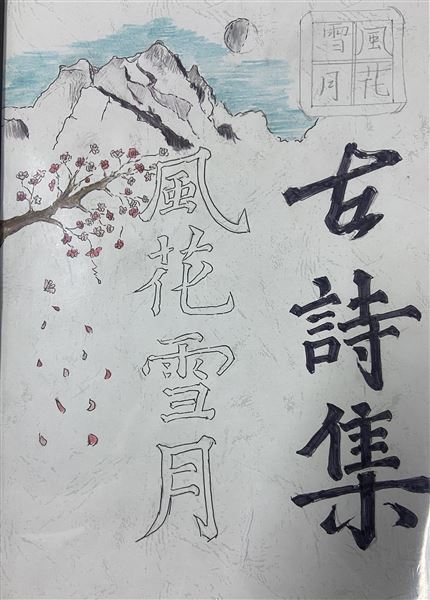 風花
雪月
古詩集
風花雪月